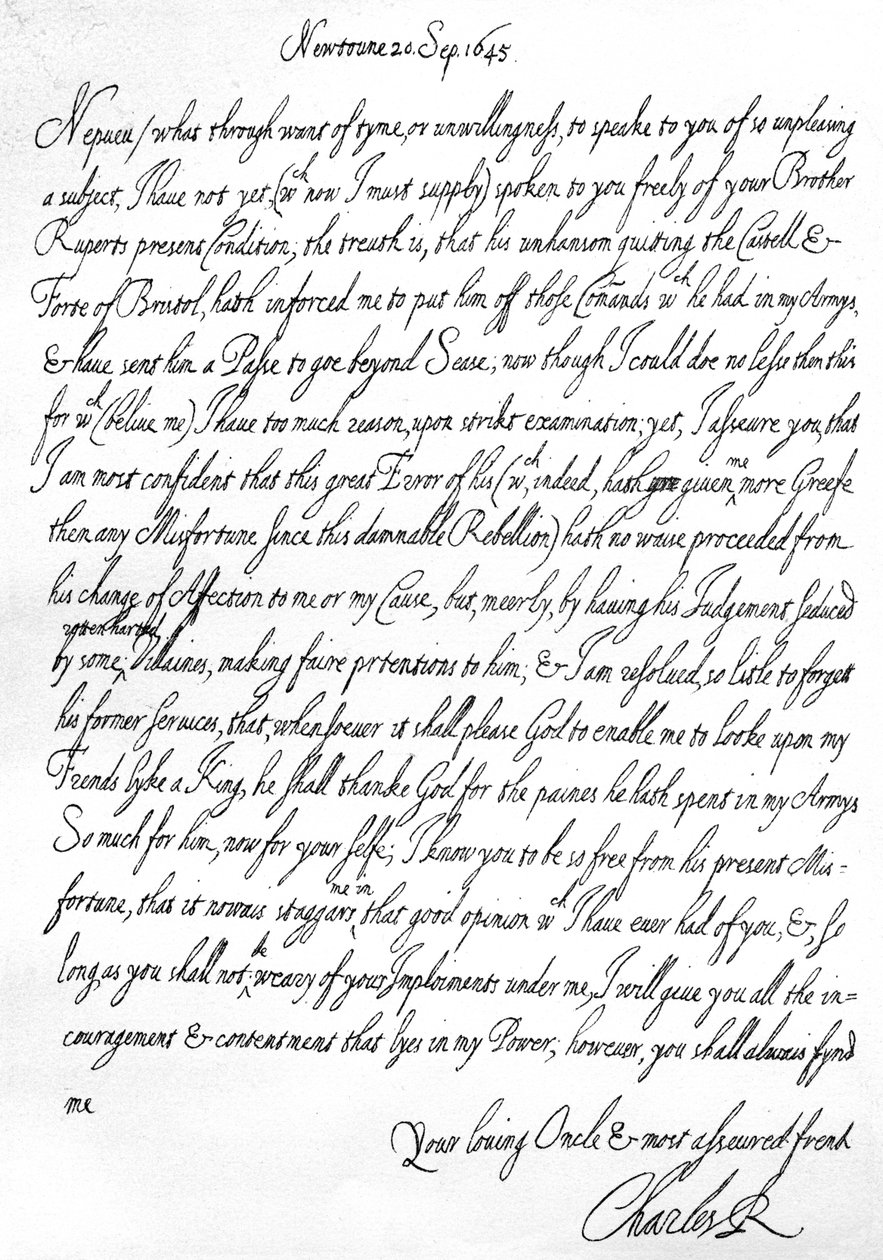 Newtoune 20. Sep. 1645.
Nepueu / what through want of tyme, or unwillingness, to speake to you of so unpleasing
a subject, I haue not yet, (wch now I must supply) spoken to you freely of your Brother
Ruperts present Condition; the treuth is, that his unhansom quitting the Castell &
Forte of Bristol, hath inforced me to put him off those Comands wch he had in my Armys,
& haue sent him a Passe to goe beyond Sease; now though I could doe no lesse then this
for wch (beliue me) I haue too much reason, upon strikt examination; yet, I asseure you, that
I am most confident that this great Error of his (wch, indeed, hath given me more Greefe
then any Misfortune since this damnable Rebellion) hath no waise proceeded from
his change of Affection to me or my Cause, but, meerly, by hauing his Judgement seduced
by some rotten harted Villaines, making faire prtentions to him; & I am resolued, so litle to forgett
his former seruices, that, whensoeuer it shall please God to enable me to looke upon my
Frends lyke a King, he shall thanke God for the paines he hath spent in my Armys
So much for him, now for your selfe; I know you to be so free from his present Mis=
fortune, that it nowais staggars me in that good opinion wch I haue euer had of you, &, so
long as you shall not be weary of your Imploiments under me, I will give you all the in=
couragement & contentment that lyes in my Power; however, you shall alwais fynd
me
Your louing Oncle & most asseured frend
Charles R